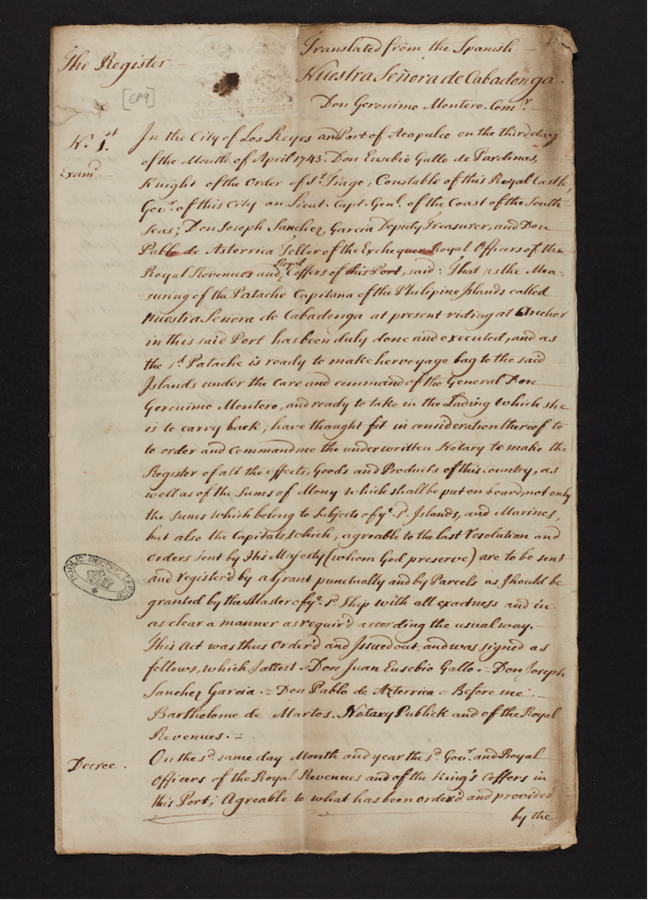 Translated from the Spanish
The Register
Nuestra Señora de Cabadonga.
Don Geronimo Montero. Comr.
[CP9]
No. 1st
Examd
In the City of Los Reyes and Port of Acapulco on the third day
of the Month of April 1743. Don Eusebio Gallo de Pardinas,
Knight of the Order of St. Iago, Constable of this Royal Castle,
Govr. of this City an Lieut. Capt. Genl. of the Coast of the South
Seas; Don Joseph Sanchez Garcia Deputy Treasurer, and Don
Pablo de Aztorrica Teller of the Exchequer Royal Officers of the
Royal Revenues and Royal Coffers of this Port, said: That as the Mea-
-suring of the Patache Capitana of the Philipine Islands called
Nuestra Senora de Cabadonga at present riding at Anchor
in this said Port has been duly done and executed, and as
the sd. Patache is ready to make her voyage bag to the said
Islands under the Care and command of the General Don
Geronimo Montero, and ready to take in the Lading which she
is to carry back, have thought fit in consideration thereof to
to order and command me the underwritten Notary to make the
Register of all the effects, Goods and Products of this country, as
well as of the Sums of Mony which shall be put on board, not only
the sums which belong to Subjects of ye. sd. Islands, and Marines,
but also the Capitals which, agreeable to the last Resolution and
orders sent by His Majesty (whom God preserve) are to be sent
and registerd by a Grant punctually and by Parcels as should be
granted by the Master of ye. sd. Ship with all exactness and in
as clear a manner as requir'd according the usual way.
This Act was thus Order'd and Issued out, and was signed as
follows, which I attest. Don Juan Eusebio Gallo. = Don Joseph
Sanchez Garcia. = Don Pablo de Azterrica. = Before me
Bartholome de Martos. Notary Publick and of the Royal
Revenues. =
Decree.
On the sd. same day Month and year the sd. Govr. and Royal
Officers of the Royal Revenues and of the King's Coffers in
this Port; Agreable to what has been order'd and provided
by the
PUBLIC RECORD OFFICE